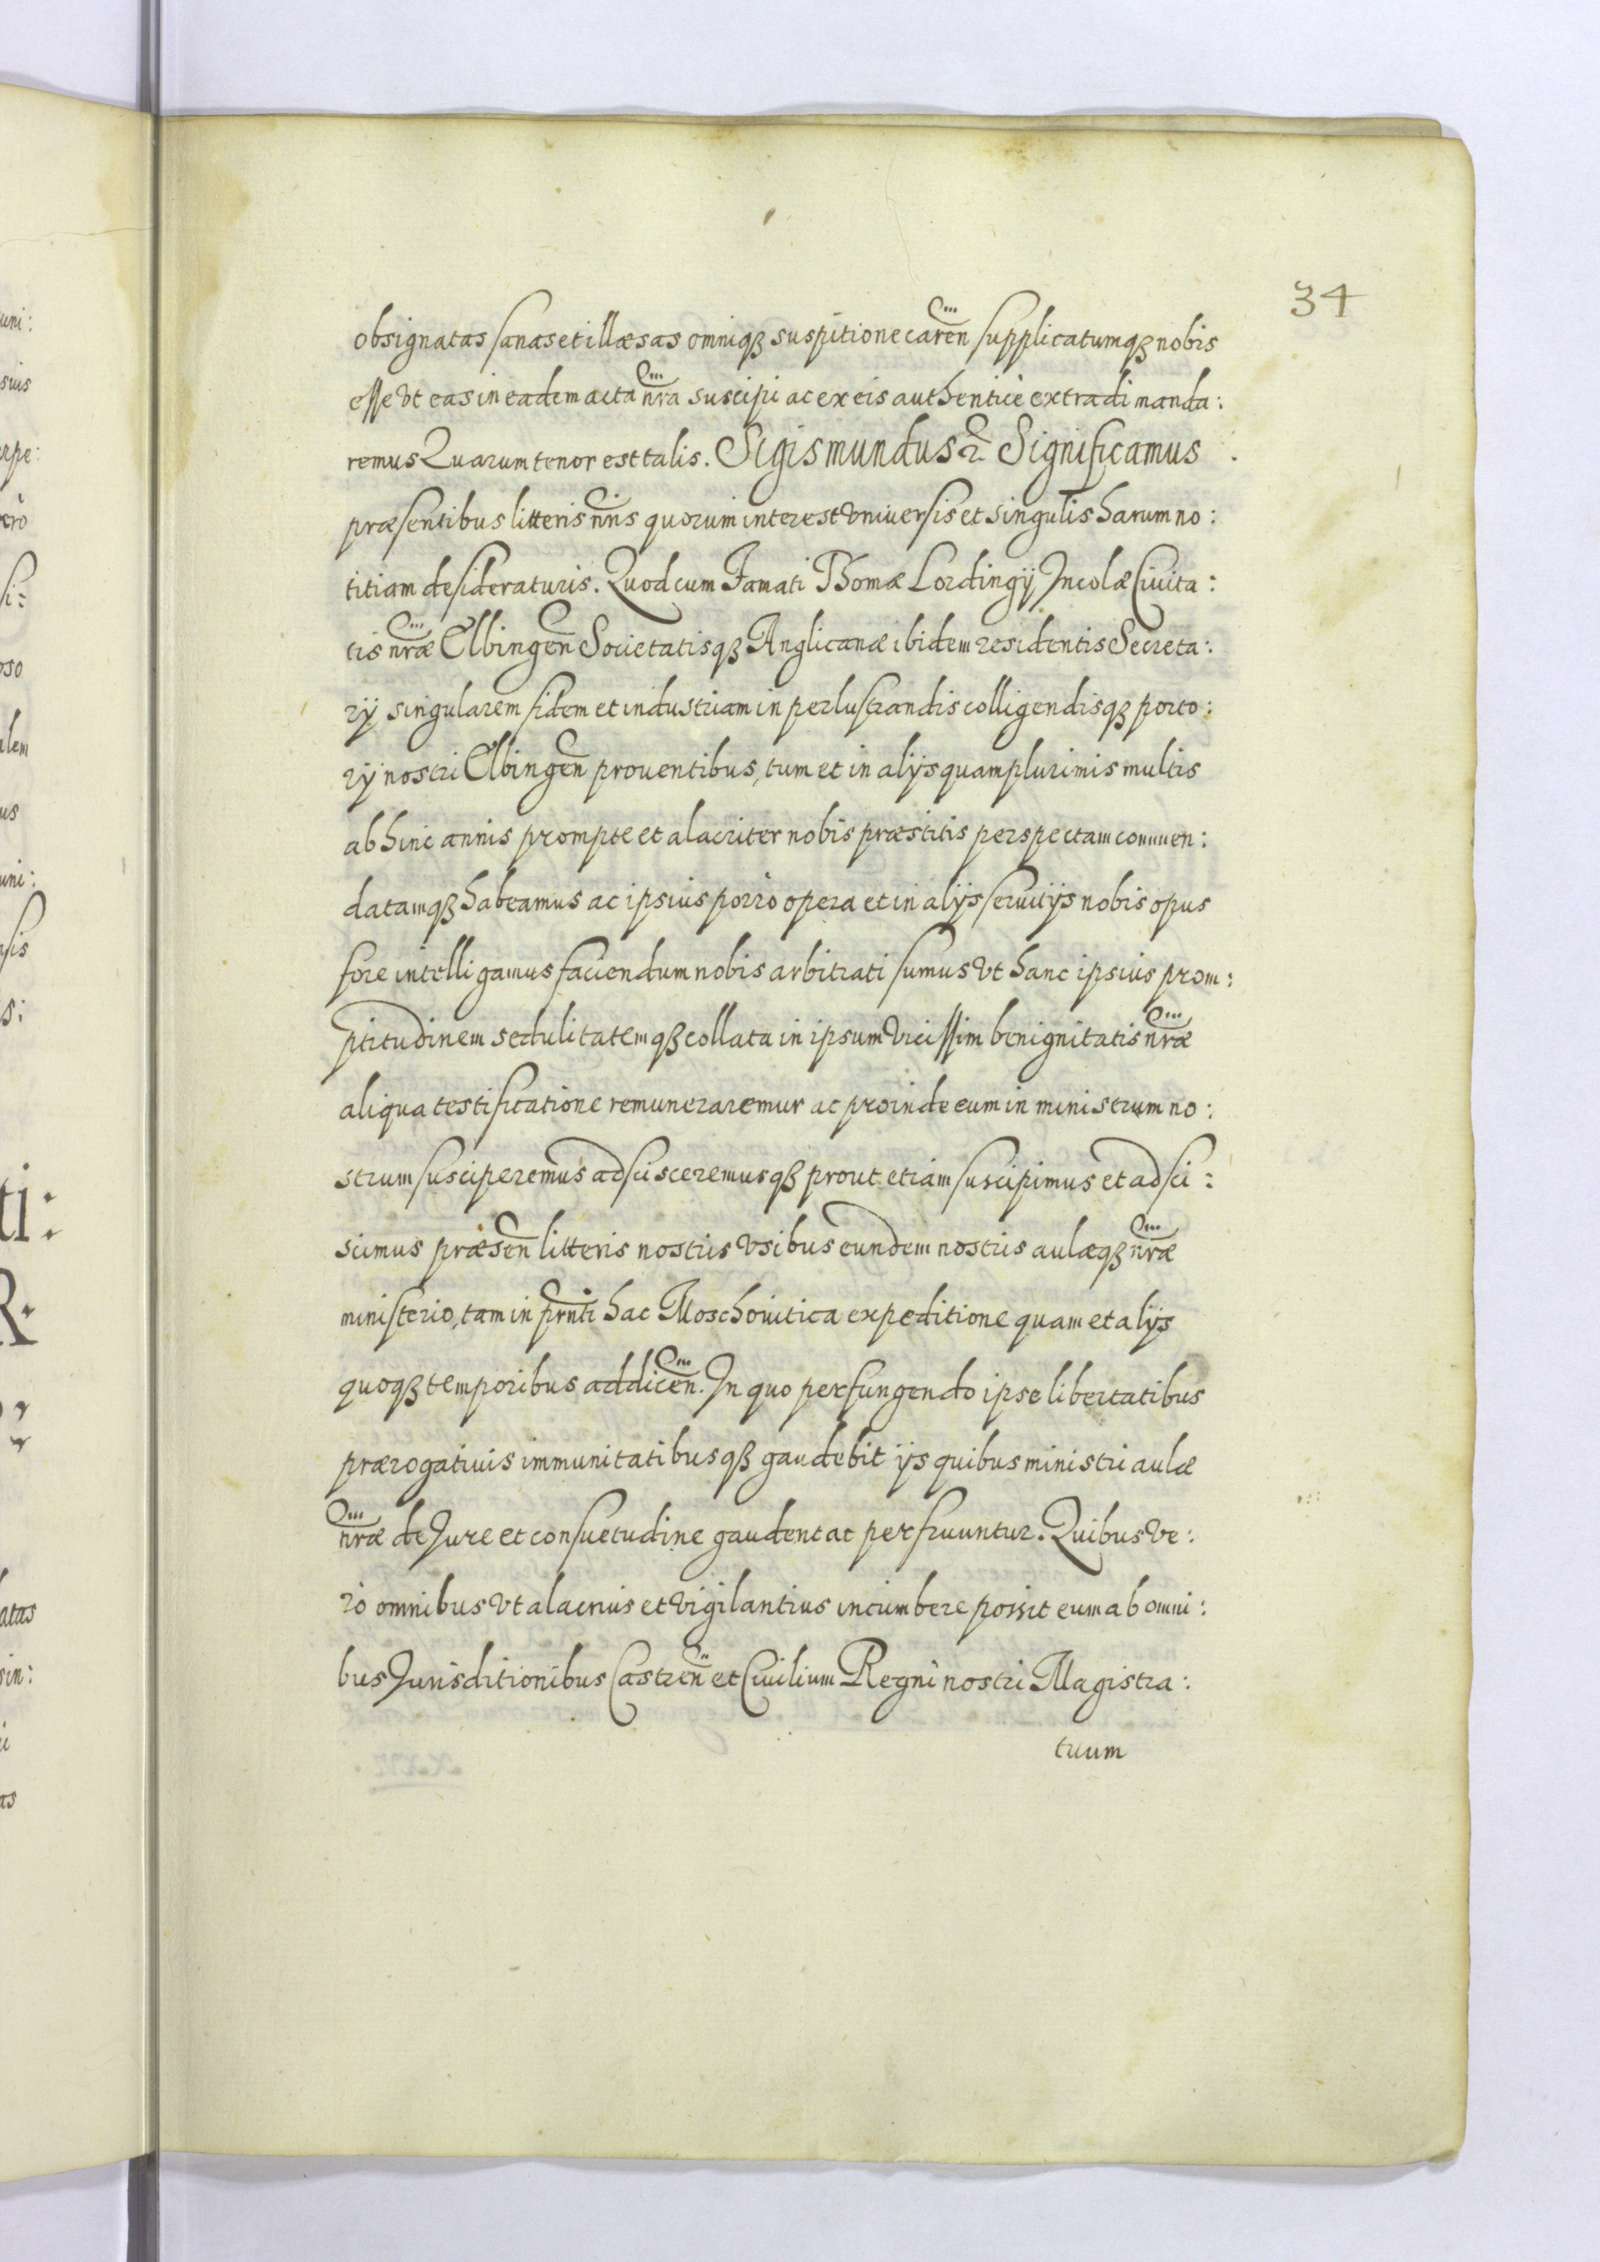 34
obsignatas sanas et illæsas omniq₃ suspitione caren̄ supplicatumq₃ nobis
esse vt eas in eadem acta nr̄a suscipi ac ex eis authenticè extradi manda:
remus Quarum tenor est talis. Sigismundus ꝛ. Significamus
præsentibus litteris nr̄is quorum interest vniversis et singulis harum no:
titiam desideraturis. Quod cum Famati Thomæ Lordingij Incolæ Civita:
tis nr̄æ Elbingen̄ Societatisq₃ Anglicanæ ibidem residentis Secreta:
rij singularem fidem et industriam in perlustrandis colligendisq₃ porto:
rij nostri Elbingen̄ prouentibus, tum et in alijs quamplurimis multis
abhinc annis prompte et alacriter nobis præstitis perspectam commen:
datamq₃ habeamus ac ipsius porrò opera et in alijs seruitijs nobis opus
fore intelligamus faciendum nobis arbitrati sumus vt hanc ipsius prom:
ptitudinem sedulitatemq₃ collata in ipsum vicissim benignitatis nr̄æ
aliqua testificatione remuneraremur ac proinde eum in ministrum no:
strum susciperemus adscisceremusq₃ prout etiam suscipimus et adsci:
scimus præsen̄ litteris nostris vsibus eundem nostris aulæq₃ nr̄æ
ministerio, tam in prn̄ti hac Moschouitica expeditione quam et alijs
quoq₃ temporibus addicen̄. In quo perfungendo ipse libertatibus
prærogatiuis immunitatibusq₃ gaudebit ijs quibus ministri aulæ
nr̄æ de Jure et consuetudine gaudent ac perfruuntur. Quibus ve:
rò omnibus vt alacrius et vigilantius incumbere possit eum ab omni:
bus Jurisditionibus Castren̄ et Ciuilium Regni nostri Magistra:
tuum